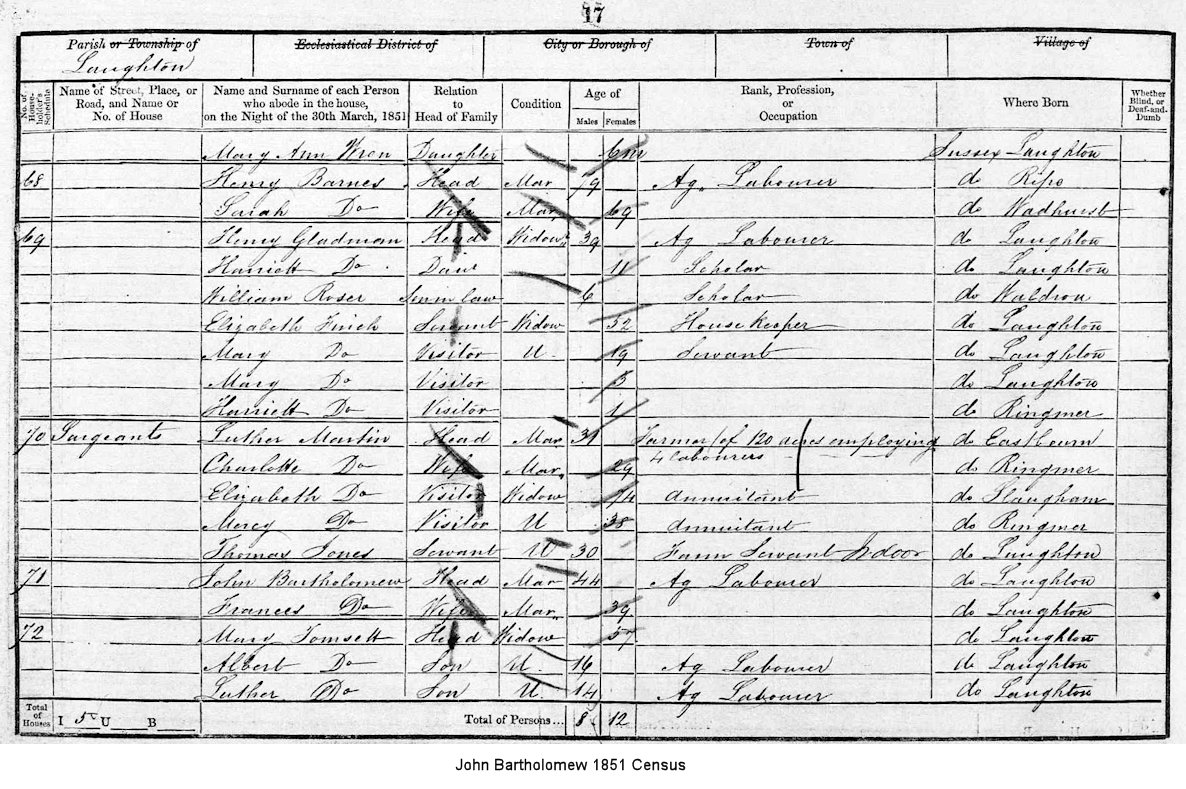 17
Parish or Township of Ecclesiastical District of City or Borough of Town of Village of
Laughton
No. of House-holder's Schedule Name of Street, Place, or Road, and Name or No. of House Name and Surname of each Person who abode in the house, on the Night of the 30th March, 1851 Relation to Head of Family Condition Age of Males Females Rank, Profession, or Occupation Where Born Whether Blind, or Deaf-and-Dumb
Mary Ann Wren Daughter 6m Sussex Laughton
68 Henry Barnes Head Mar 79 Ag. Labourer do Ripe
Sarah Do Wife Mar 69 do Wadhurst
69 Henry Gladman Head Widowr 39 Ag Labourer do Laughton
Harriett Do Daur 11 Scholar do Laughton
William Roser Son in law 6 Scholar do Waldron
Elizabeth Finch Servant Widow 52 House Keeper do Laughton
Mary Do Visitor U. 19 Servant do Laughton
Mary Do Visitor do Laughton
Harriett Do Visitor 1 do Ringmer
70 Sargeants Luther Martin Head Mar 31 Farmer of 120 acres employing do Eastbourn
4 labourers
Charlotte Do Wife Mar. 29 do Ringmer
Elizabeth Do Visitor Widow 74 Annuitant do Slaugham
Mercy Do Visitor U 38 Annuitant do Ringmer
Thomas Jones Servant U 30 Farm Servant Indoor do Laughton
71 John Bartholomew Head Mar 44 Ag Labourer do Laughton
Frances Do Wife Mar. 39 do Laughton
72 Mary Tomsett Head Widow 57 do Laughton
Albert Do Son U. 16 Ag Labourer do Laughton
Luther Do Son U. 14 Ag Labourer do Laughton
Total of Houses I 5 U B Total of Persons... 8 12
John Bartholomew 1851 Census